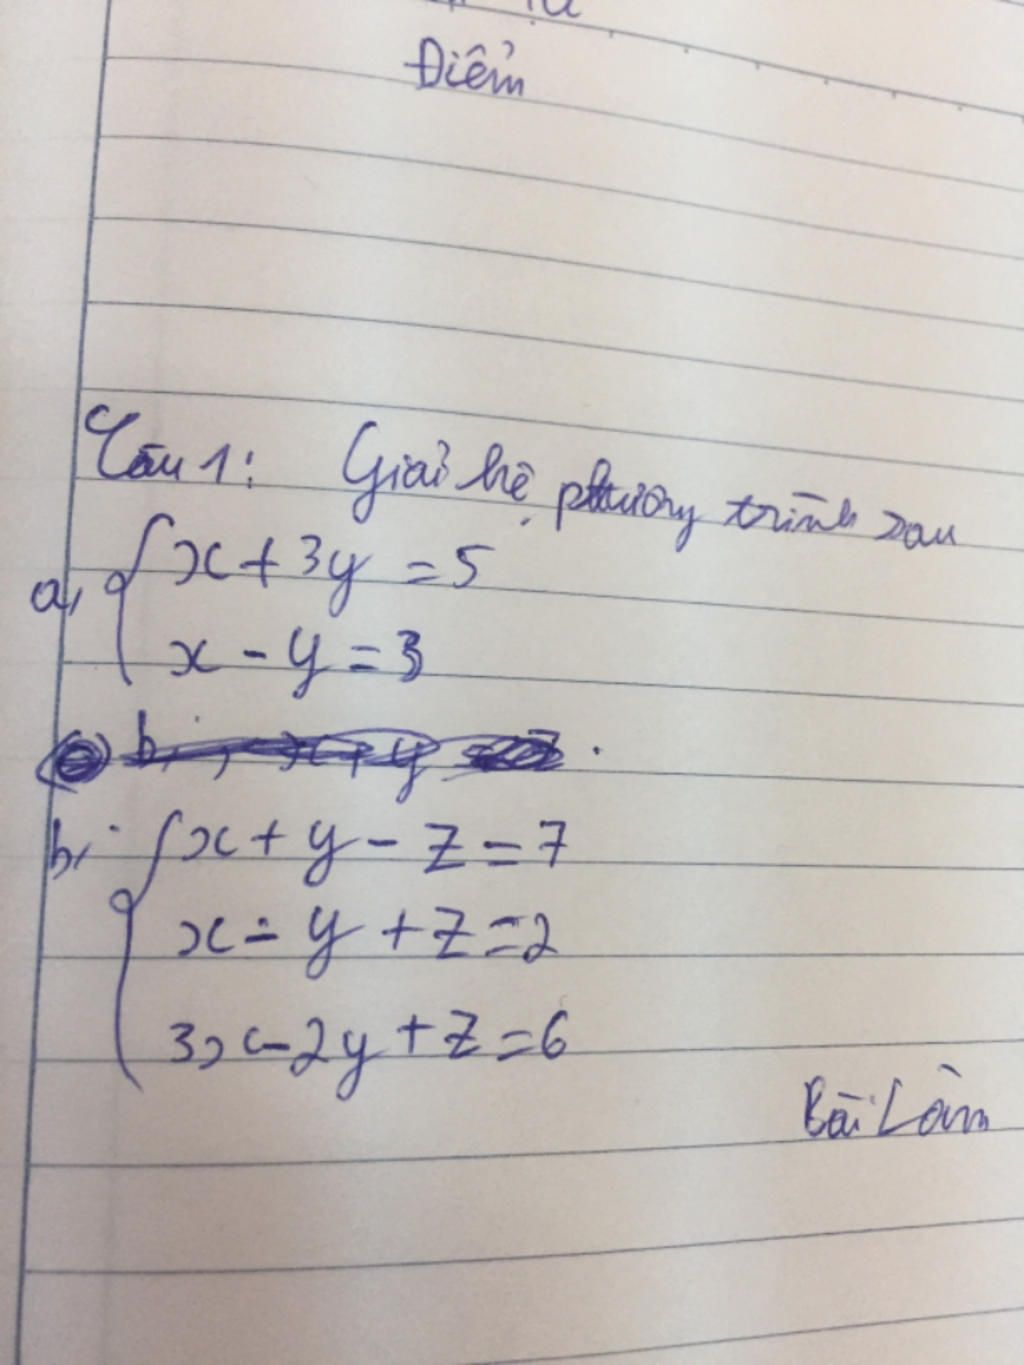 Điểm
Câu 1: Giải hệ phương trình sau
a, { x + 3y = 5
x - y = 3
b, { x + y - z = 7
x - y + z = 2
3x - 2y + z = 6
Bài Làm